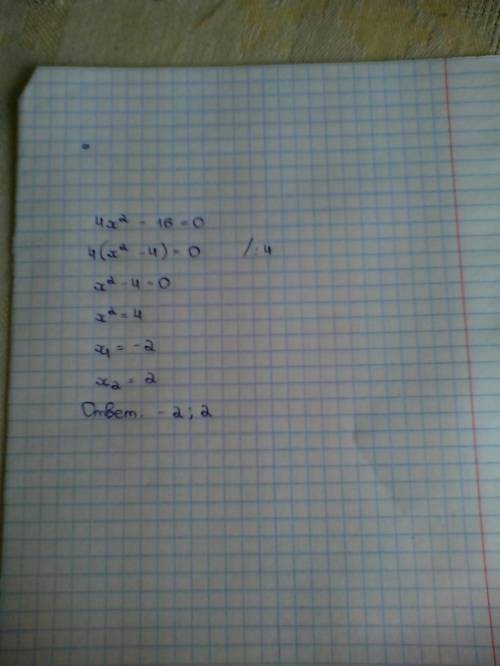 4x² - 16 = 0
4(x² - 4) = 0 /:4
x² - 4 = 0
x² = 4
x₁ = -2
x₂ = 2
Ответ. -2; 2